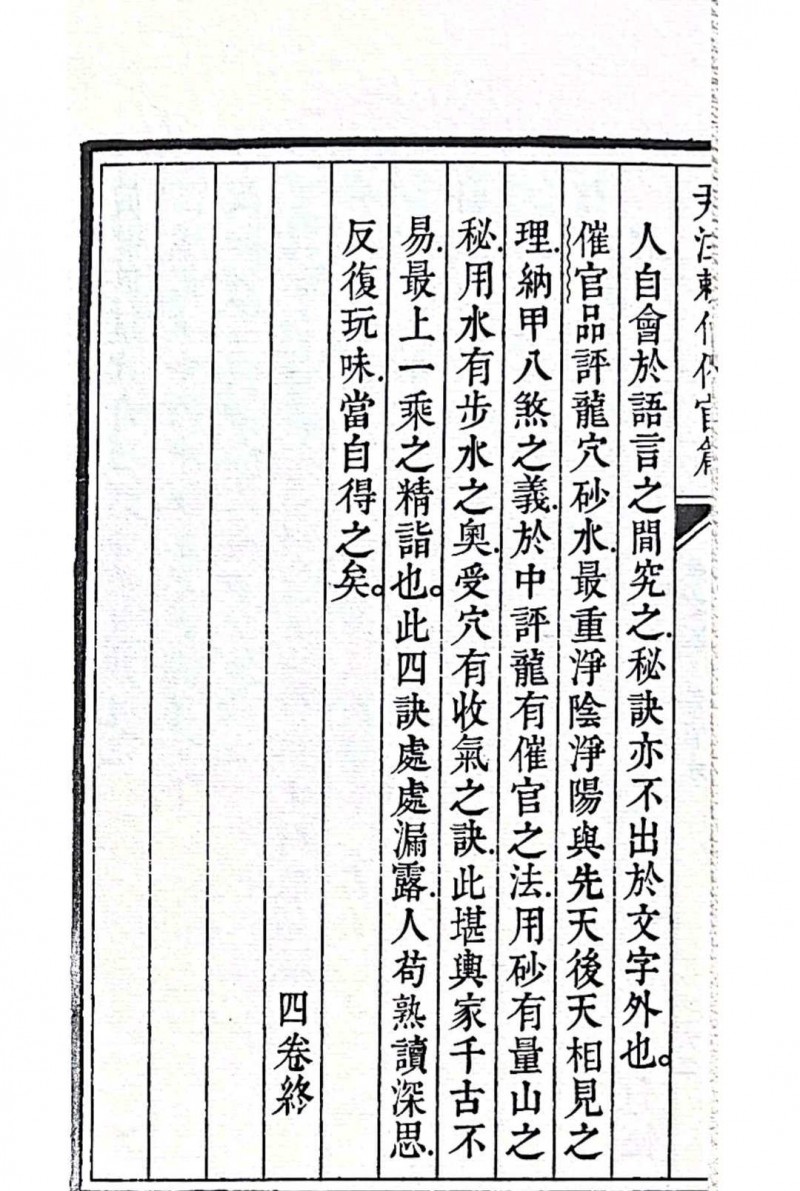 尹注賴仙催官篇
人自會於語言之間究之秘訣亦不出於文字外也。
催官品評龍穴砂水最重淨陰淨陽與先天後天相見之
理納甲八煞之義於中評龍有催官之法用砂有量山之
秘用水有步水之奧受穴有收氣之訣此堪輿家千古不
易最上一乘之精詣也。此四訣處處漏露人苟熟讀深思
反復玩味當自得之矣。
四卷終